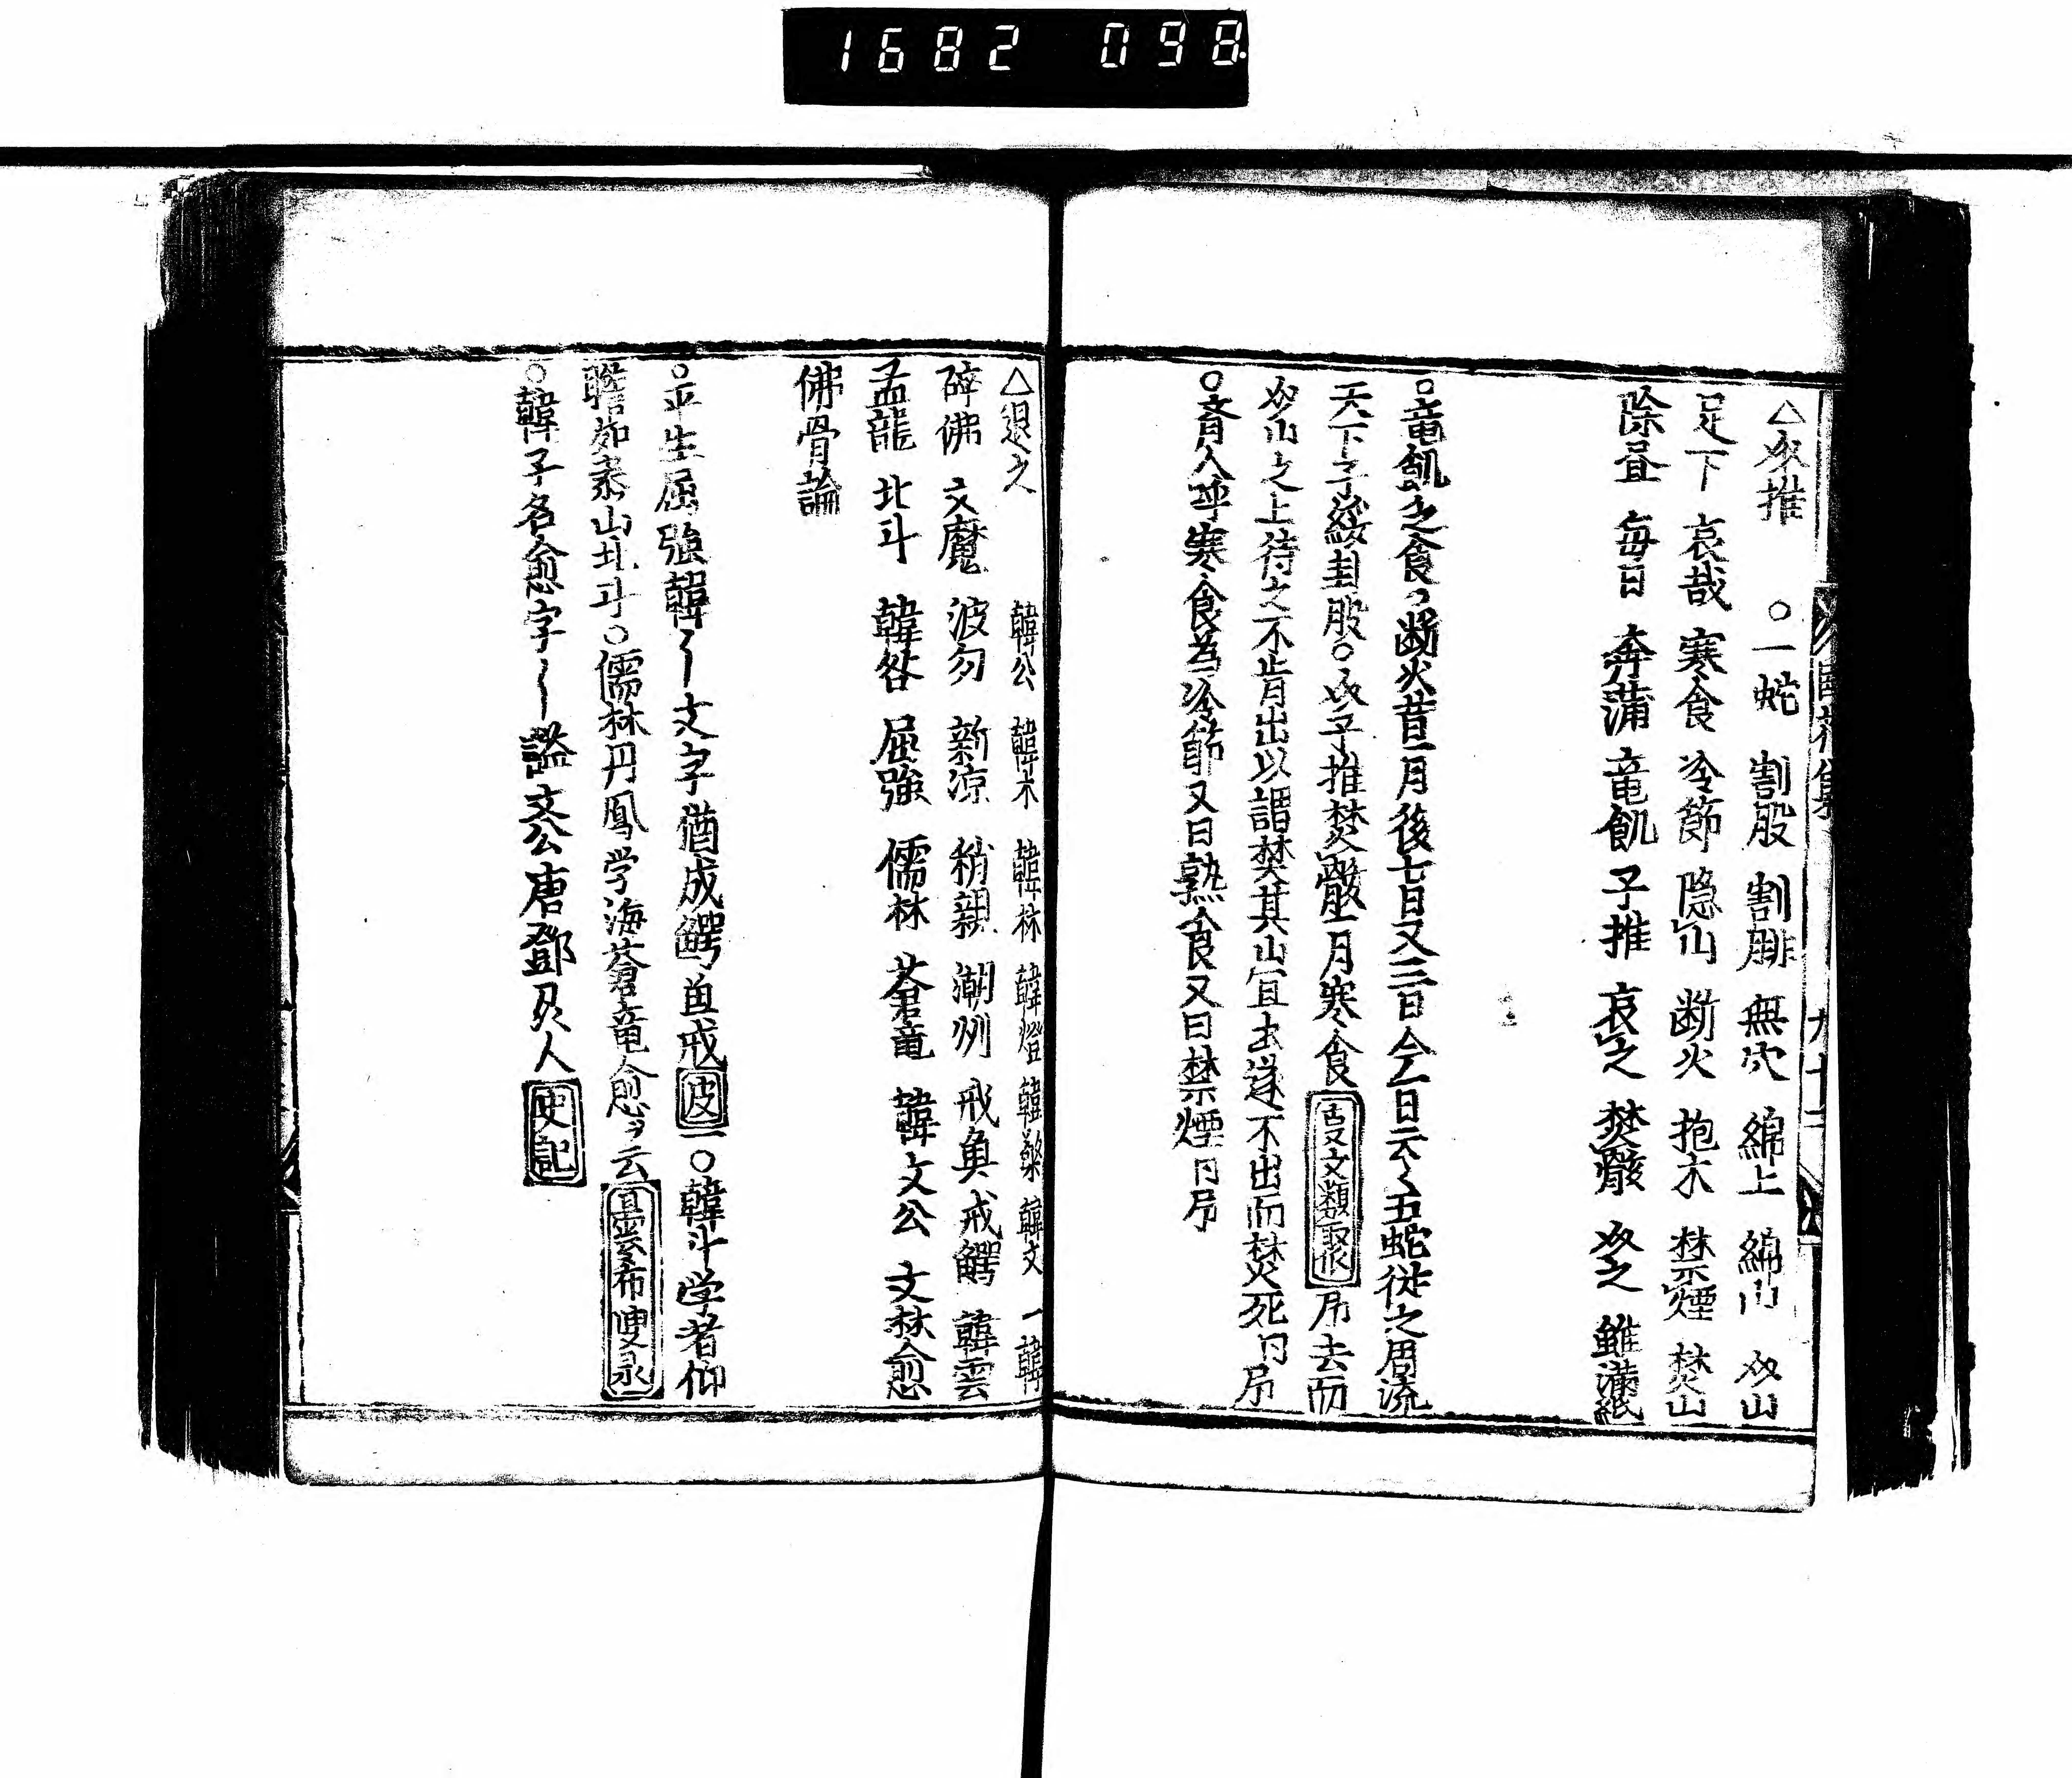 1682 098
△介推 ○一蛇 割股 割腓 無穴 綿上 綿山 介山
足下 哀哉 寒食 冷節 隐山 断火 抱木 禁煙 焚山
除昼 每日 奔蒲 竜飢 子推 哀之 焚骸 介之 雖満紙
○竜飢之食々断火昔一月後七日又三日今一日云々五蛇従之周流
天下子綏封股○介子推焚骸一月寒食 去而
介山之上待之不肯出以謂焚其山宜出遂不出而焚死
○晋人呼寒食為冷節又曰熟食又曰禁煙
△退之 韓公 韓木 韓林 韓燈 韓檠 韓文 一韓
辟佛 文魔 波匆 新涼 稍親 潮州 戒魚 戒鰐 韓雲
孟龍 北斗 韓咎 屈強 儒林 蒼竜 韓文公 文林愈
佛骨論
○平生屈強韓〻文字猶成鰐魚戒 皮 一○韓斗学者仰
瞻如泰山北斗○儒林丹鳳学海蒼竜愈ヲ云
○韓子名愈字〻謚文公唐鄧州人 史記